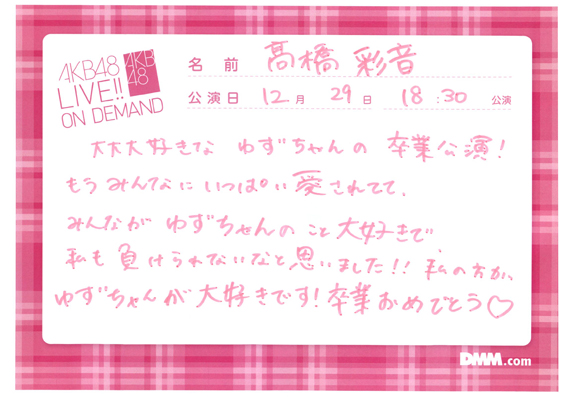 AKB48
LIVE!!
ON DEMAND
AKB
48
名前 髙橋 彩音
公演日 12月 29日 18:30 公演
大大大好きな ゆずちゃんの 卒業公演!
もうみんなにいっぱい愛されてて、
みんながゆずちゃんのこと大好きで
私も負けられないなと思いました!! 私の方が、
ゆずちゃんが大好きです!卒業おめでとう♡
DMM.com